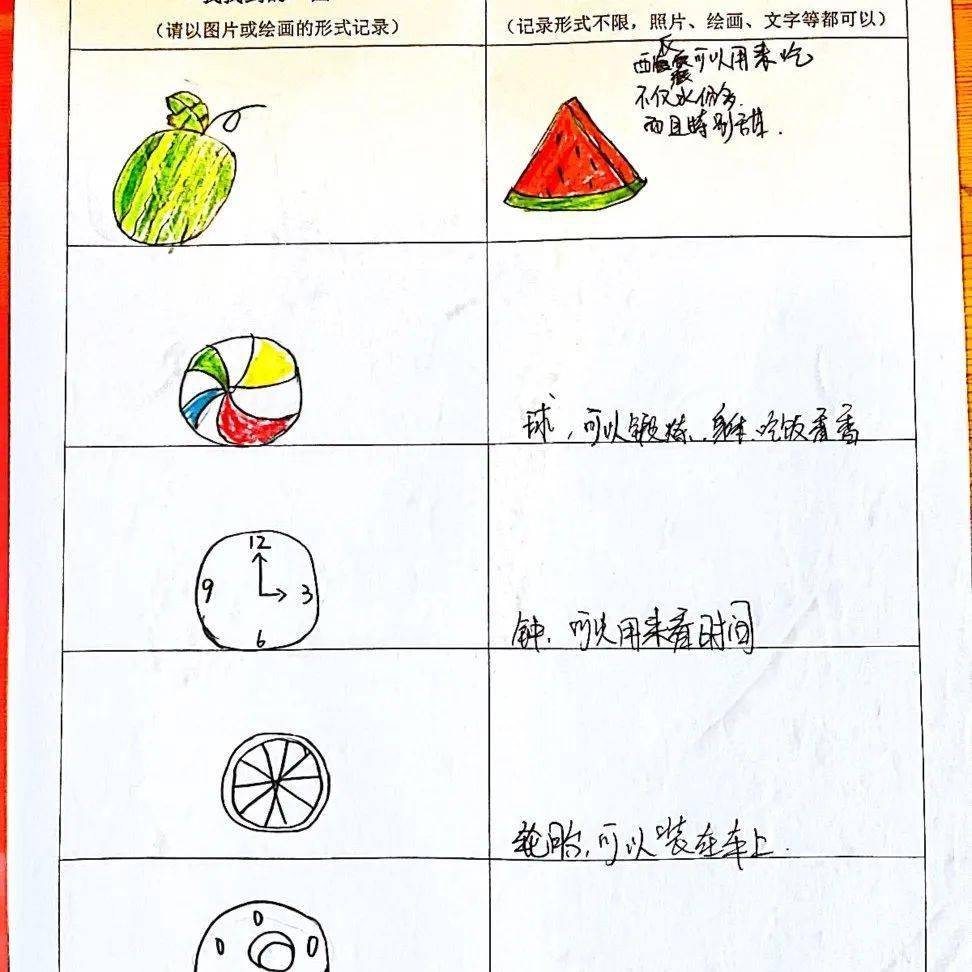 (请以图片或绘画的形式记录)
(记录形式不限，照片、绘画、文字等都可以)
可以用来吃
不仅水份多.
而且特别甜.
球，可以锻炼.身体.吃饭看香
12
9 3
6
钟，可以用来看时间
轮胎，可以装在车上.